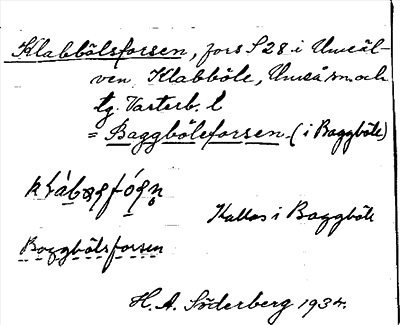 Klabbölsforsen, fors S 28 i Umeäl-
ven, Klabböle, Umeå sn och
tg. Vasterb. l
= Baggböleforsen (i Baggböle)
Kallas i Baggböle
Baggbölsforsen
H. A. Söderberg 1934.